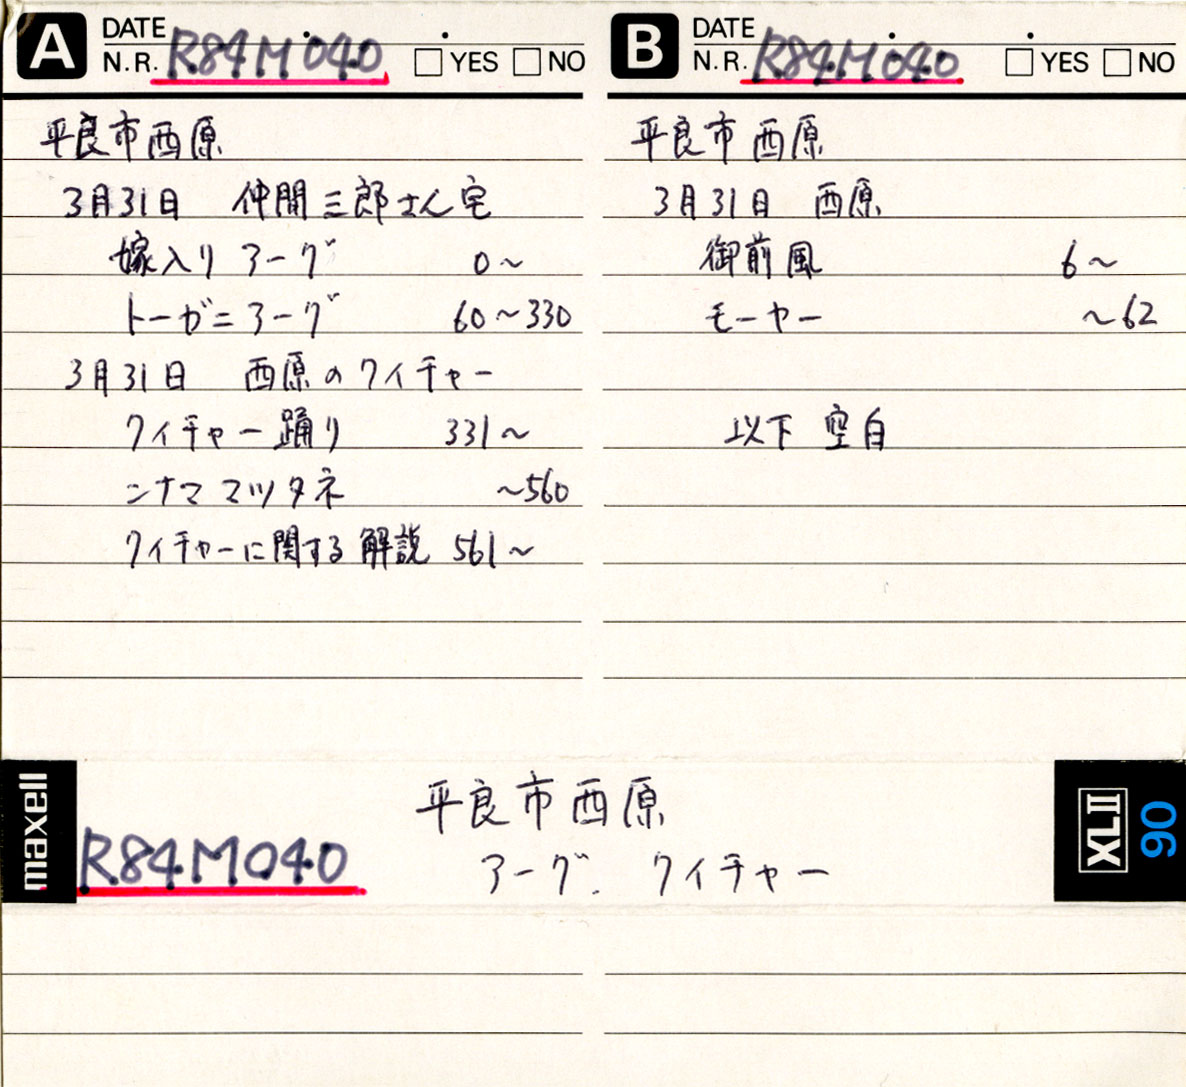 A DATE
N.R. R84M040 YES NO
平良市西原
3月31日 仲間三郎さん宅
嫁入りアーグ 0~
トーガニアーグ 60~330
3月31日 西原のクイチャー
クイチャー踊り 331~
ンナママツタネ ~560
クイチャーに関する解説 561~
B DATE
N.R. R84M040 YES NO
平良市西原
3月31日 西原
御前風 6~
モーヤー ~62
以下空白
maxell
R84M040
平良市西原
アーグ. クイチャー
XLII 90